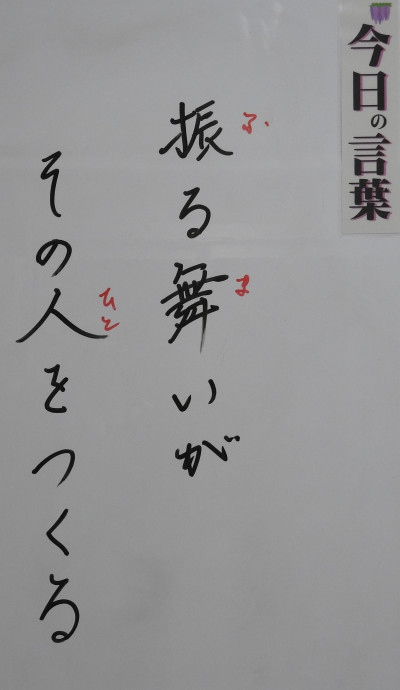 今日の言葉
振る舞いが
ふ
ま
その人をつくる
ひと